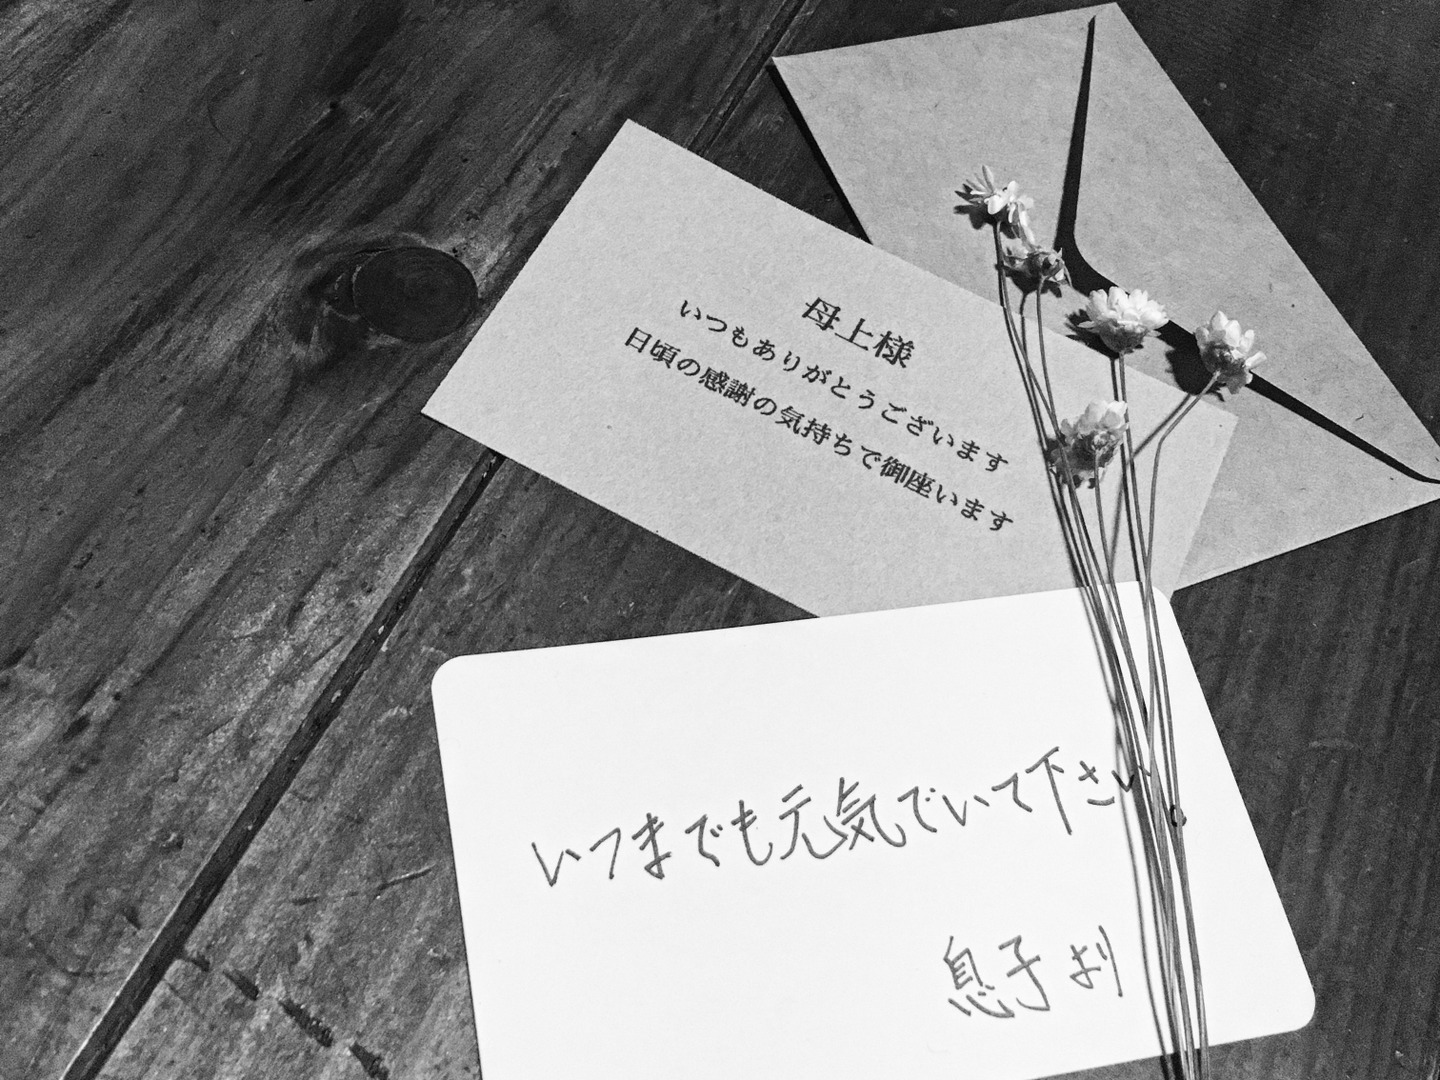 母上様
いつもありがとうございます
日頃の感謝の気持ちで御座います
いつまでも元気でいて下さい
息子より